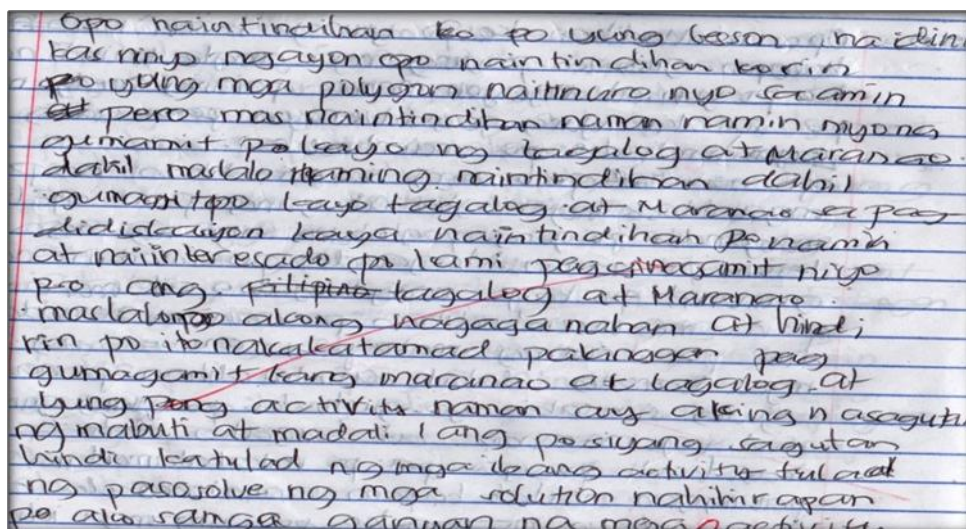 Opo naintindihan ko po yung leson na dini
kas ninyo ngayon opo naintindihan korin
po yung mga polygon naitinuro nyo sa amin
pero mas naintindihan naman namin niyong
gumamit po kayo ng tagalog at Maranao.
dahil maslalo naming naintindihan dahil
gumagitpo kayo tagalog at Maranao sa pag
didiskasyon kaya naintindihan po namin
at naiinteresado po kami pag ginagamit niyo
po ang filipino tagalog at Maranao.
maslalo akong nagaganahan at hindi
rin po ito nakakatamad pakinggan pag
gumagamit kang maranao at tagalog. at
yung pong activity naman ay aking nasagutu
ng mabuti at madali lang po siyang sagutan
hindi katulad ng mga ibang activity tulad
ng pasosolve ng mga solution nahihirapan
po ako samga ganyan na mga activity